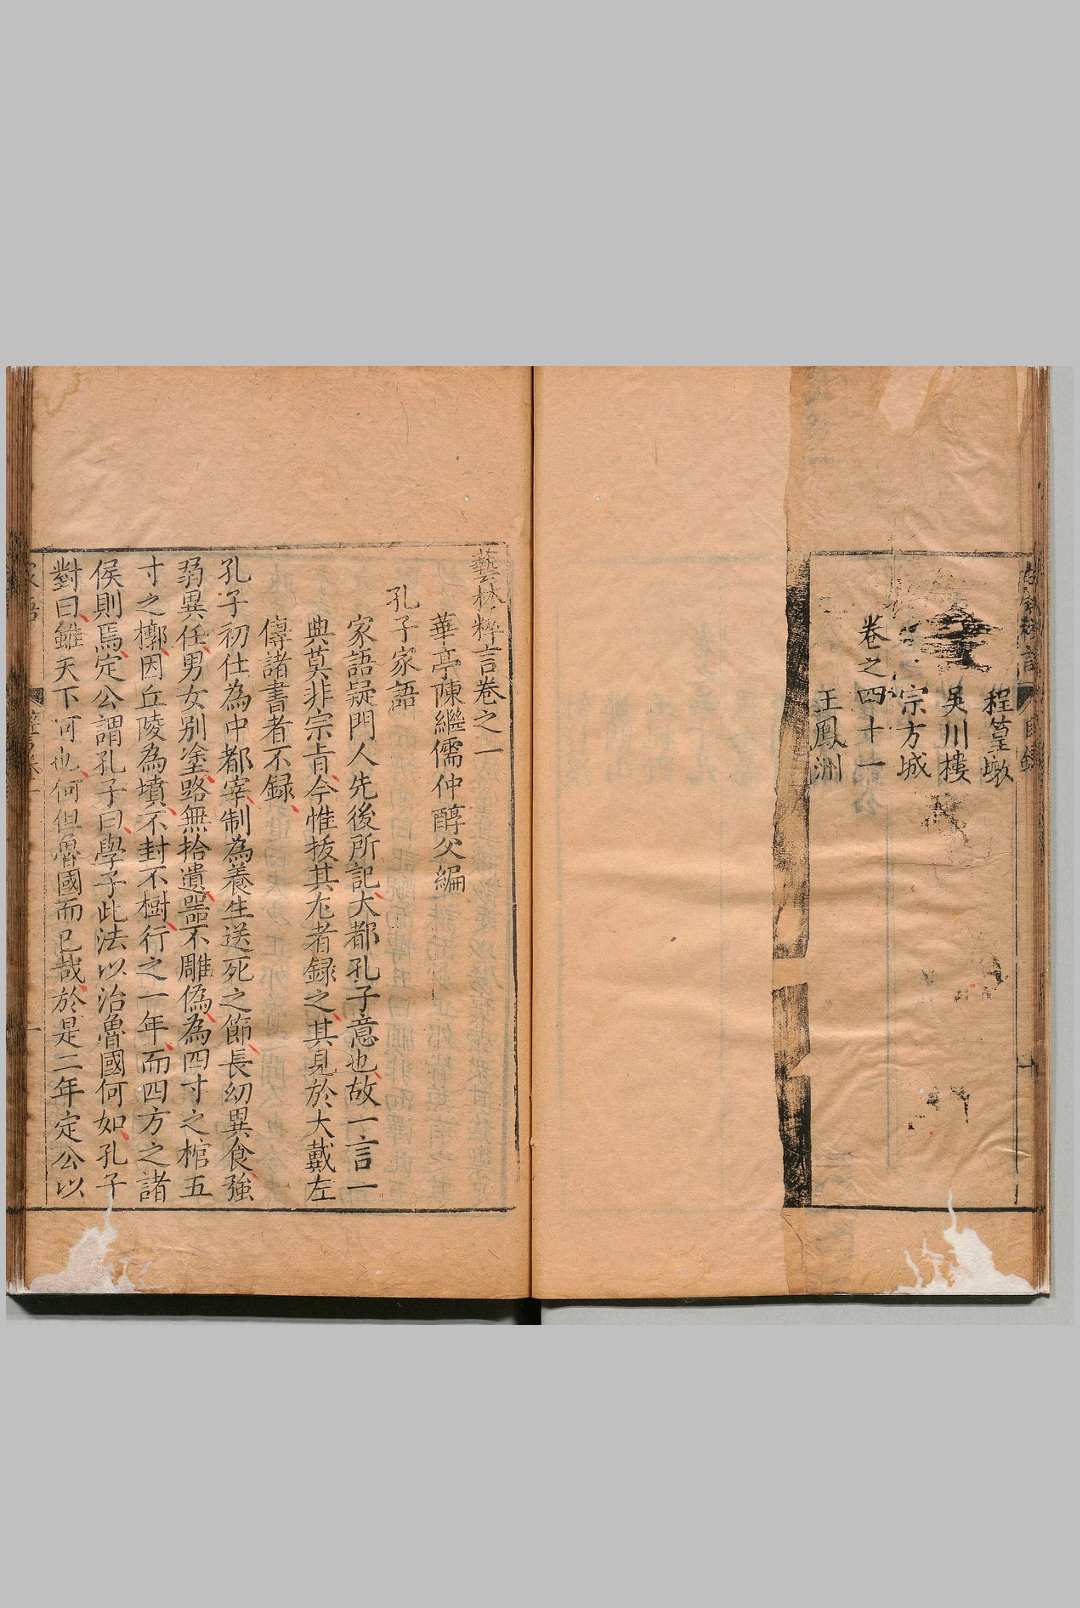 程篁墩
吳川樓
宗方城
卷之四十一
王鳳洲
藝林粹言卷之一
華亭陳繼儒仲醇父編
孔子家語
家語疑門人先後所記大都孔子意也故一言一
典莫非宗旨今惟拔其尤者録之其見於大戴左
傳諸書者不録
孔子初仕為中都宰制為養生送死之節長幼異食強
弱異任男女別塗路無拾遺噐不雕偽為四寸之棺五
寸之槨因丘陵為墳不封不樹行之一年而四方之諸
侯則焉定公謂孔子曰學子此法以治魯國何如孔子
對曰雖天下可也何但魯國而已哉於是二年定公以